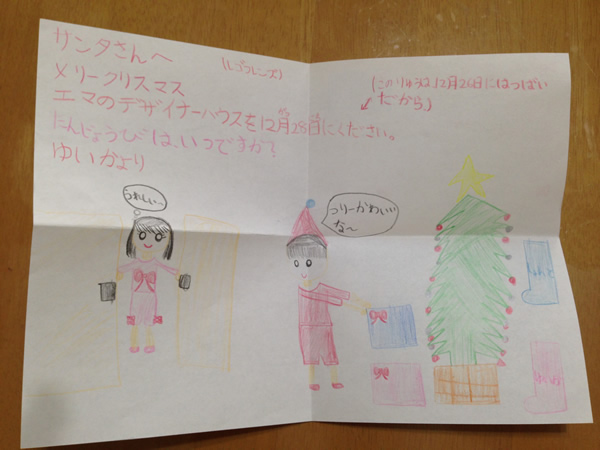 サンタさんへ
(レゴフレンズ)
メリークリスマス
エマのデザイナーハウスを12月28日にください。
たんじょうびは、いつですか?
ゆいかより
12月26日にはっぱい
だから、)
うれしいー
つりーかわいい
な〜